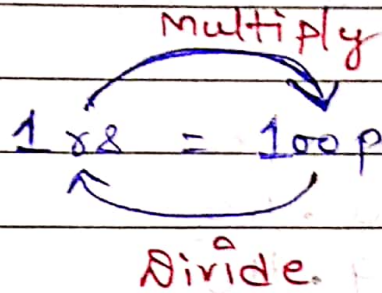 Multiply
1 rs = 100 p
Divide.